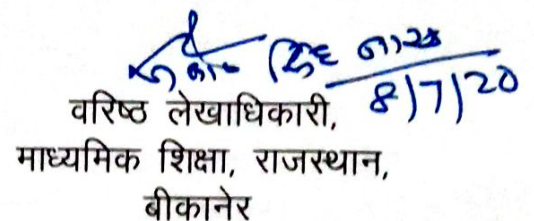 सिंह
8/7/20
वरिष्ठ लेखाधिकारी,
माध्यमिक शिक्षा, राजस्थान,
बीकानेर